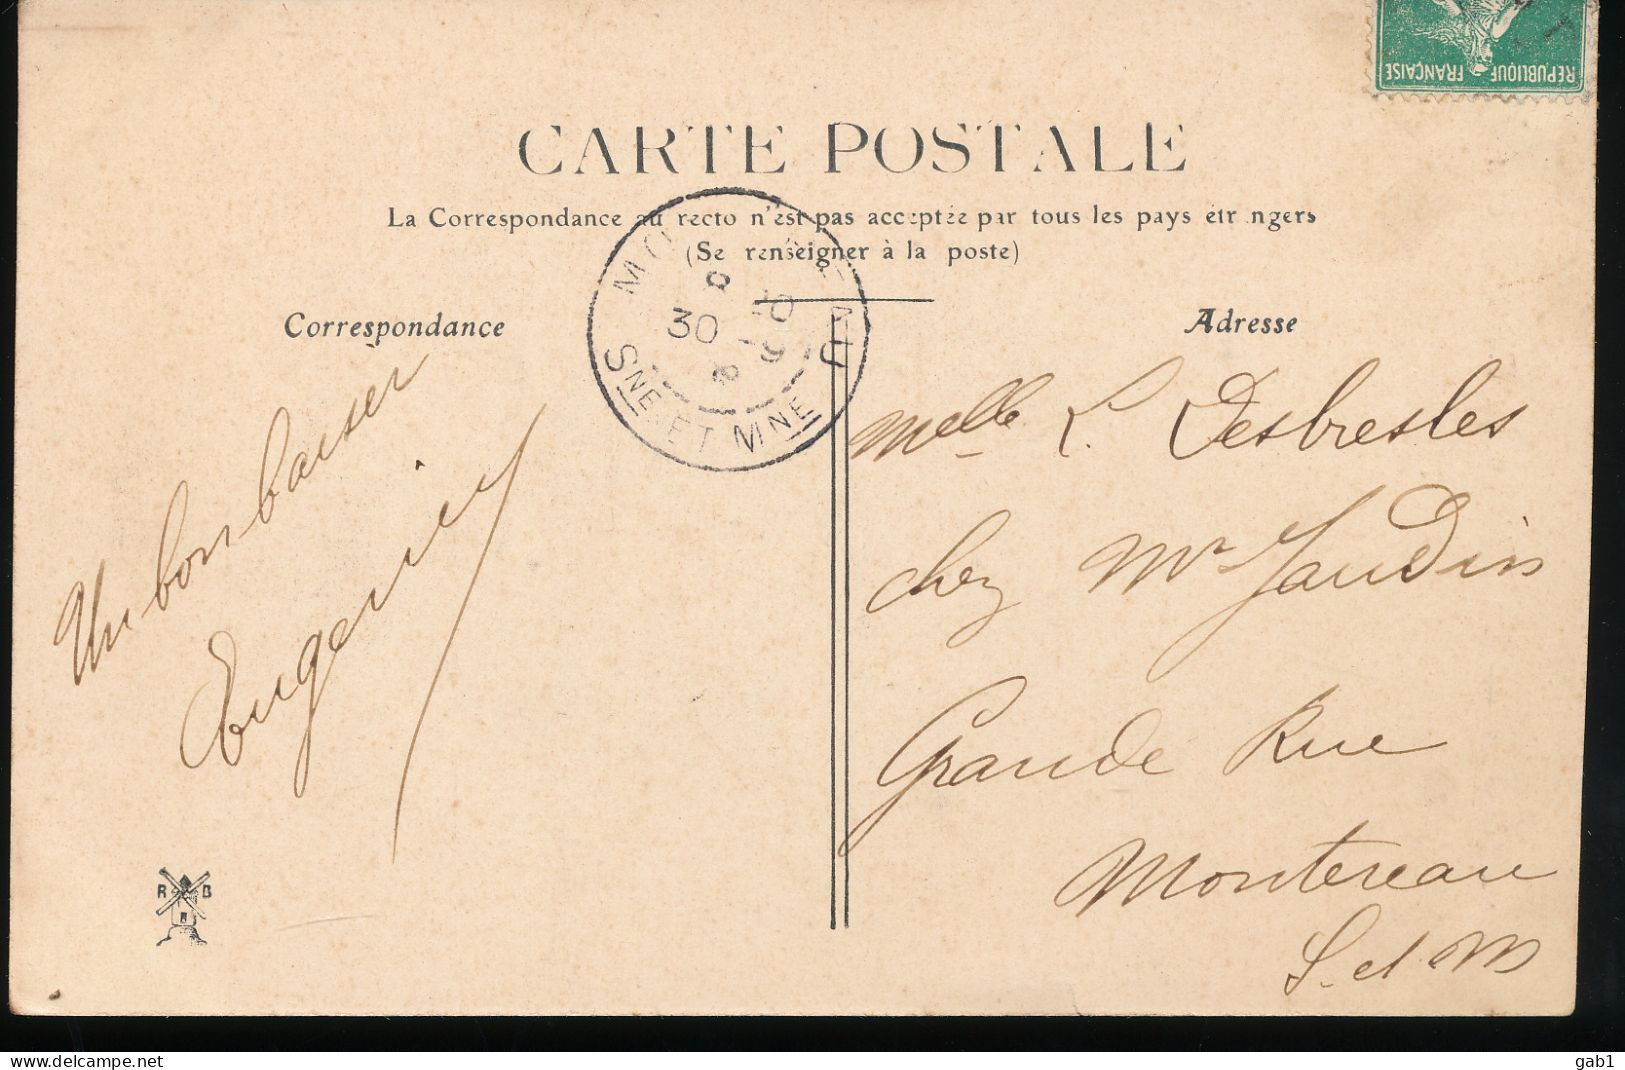 REPUBLIQUE FRANÇAISE
CARTE POSTALE
La Correspondance au recto n'est pas acceptée par tous les pays étr ngers
(Se renseigner à la poste)
Correspondance
Adresse
MO EAU
8
30
8
SNE ET MNE
Un bon baiser
Eugenie
Melle L. Desbresles
chez Mr Jaudin
Grande Rue
Montereau
S. et M
R B
www.delcampe.net
gab1